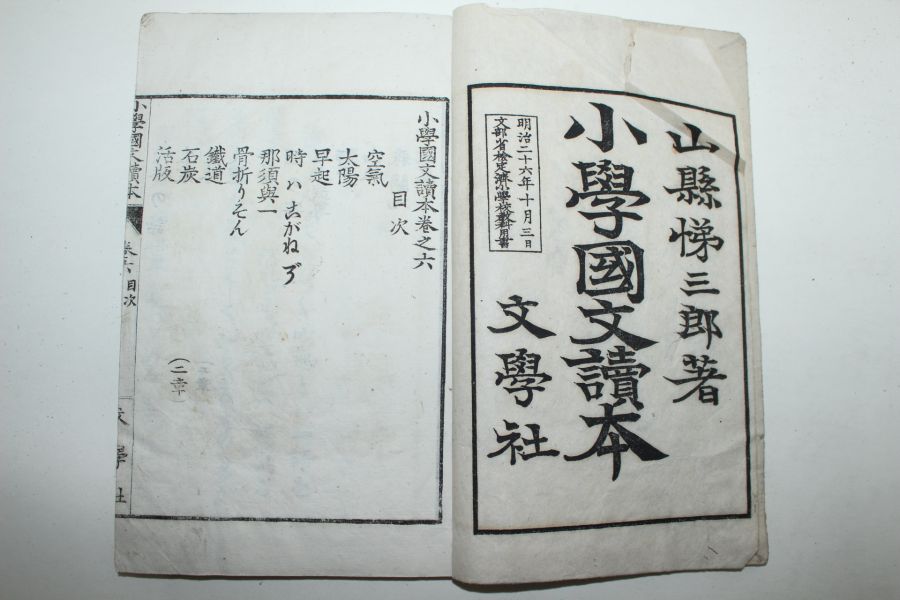 山縣悌三郎著
小學國文讀本
文學社
明治二十六年十月三日
文部省檢定濟小學校敎科用書
小學國文讀本卷之六
目次
空氣
太陽
早起
時ハこがねゾ
那須與一
骨折りそん
鐵道
石炭
活版
(二章)
小學國文讀本
卷六 目次
文學社